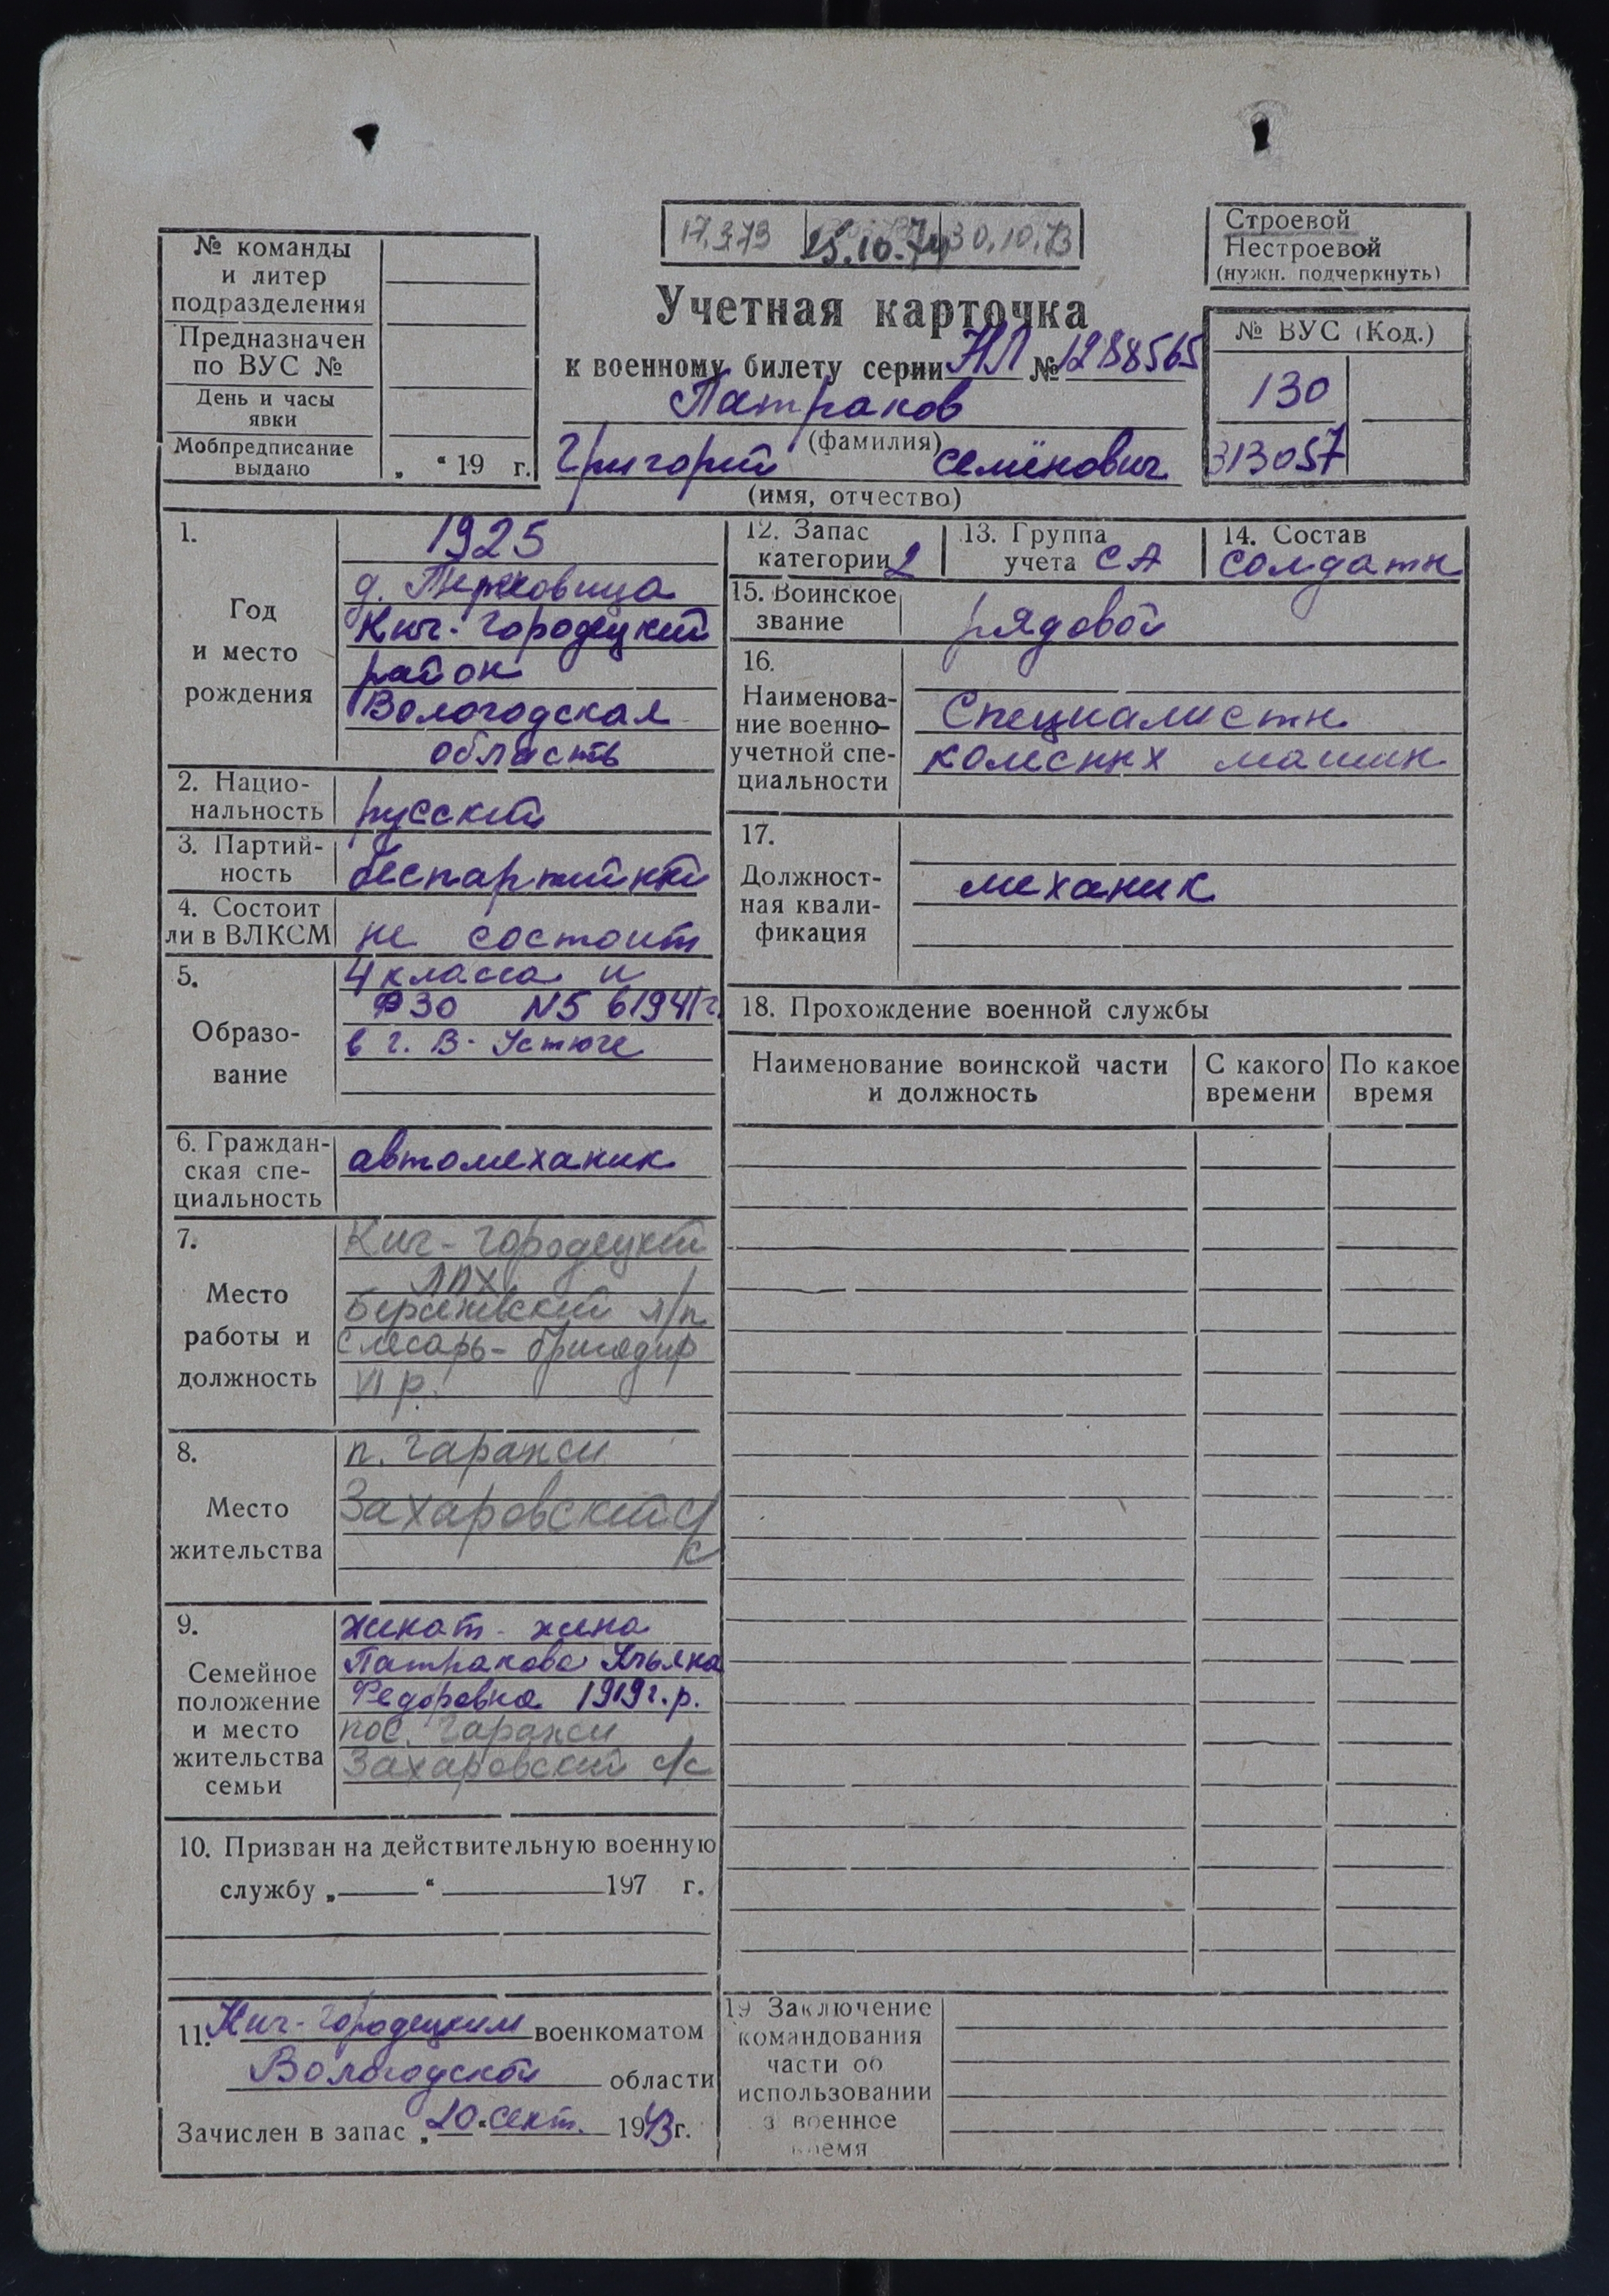 17.3.73 25.10.74 30.10.73
Строевой
Нестроевой
(нужн. подчеркнуть)
№ команды
и литер
подразделения
Предназначен
по ВУС №
День и часы
явки
Мобпредписание
выдано „ “ 19 г.
Учетная карточка
к военному билету серии НЛ № 1288565
Патраков
(фамилия)
Григорий Семёнович
(имя, отчество)
№ ВУС (Код.)
130
313057
1.
Год
и место
рождения
1925
д.
Кич-Городецкий
район
Вологодская
область
2. Нацио-
нальность русский
3. Партий-
ность беспартийный
4. Состоит
ли в ВЛКСМ не состоит
5.
Образо-
вание
4 класса и
ФЗО N5 в 1941 г.
в г. В-Устюге
6. Граждан-
ская спе-
циальность
автомеханик
7.
Место
работы и
должность
Кич-Городецкий
ЛПХ
Бережевский л/п
слесарь-бригадир
VI р.
8.
Место
жительства
п. Гаражи
Захаровский с/с
9.
Семейное
положение
и место
жительства
семьи
женат - жена
Патракова Ульяна
Федоровна 1919 г.р.
пос. Гаражи
Захаровский с/с
10. Призван на действительную военную
службу „ “ 197 г.
11. Кич-Городецким военкоматом
Вологодской области
Зачислен в запас „20“ сент. 1943 г.
12. Запас
категории 2
13. Группа
учета СА
14. Состав
солдаты
15. Воинское
звание рядовой
16.
Наименова-
ние военно-
учетной спе-
циальности
Специалисты
колесных машин
17.
Должност-
ная квали-
фикация
механик
18. Прохождение военной службы
Наименование воинской части
и должность
С какого
времени
По какое
время
19 Заключение
командования
части об
использовании
в военное
время